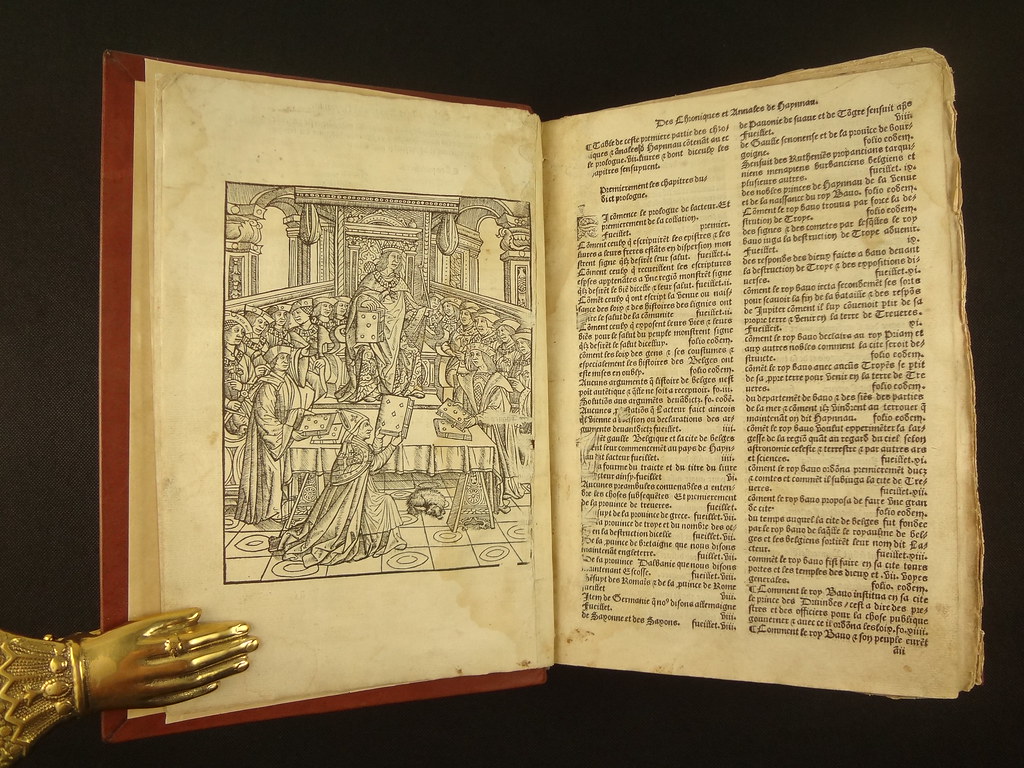 Des Chroniques et Annales de Haynnau.
¶Table de ceste premiere partie des chro-
niques & ãnales de Haynnau cõtenãt en ce
le prologue. vii. liures & dont diceulx les
chapitres sensuyuent.
Premierement les chapitres du-
dict prologue.
Icõmence le prologue de lacteur. Et
premierement de la collation.
Fueillet. premier.
Cõment ceulx q̃ escripuirẽt les epistres & les
liures a leurs freres estãtz en dispersion mon
strent signe qlz desirẽt leur salut. fueillet. i.
Cõment ceulx q̃ recueillent les escriptures
esp̃ses apptenãtes a vne regiõ monstrẽt signe
qlz desirẽt le biẽ dicelle & leur salut. fueillet. ii.
Cõmẽt ceulx q̃ ont escript la venue ou nais-
sance des loix & des histoires des lignies ont
le salut de la cõmunite fueillet. ii.
Cõment ceulx q̃ exposent leurs vies & leurs
biẽs pour le salut du peuple monstrent signe
qlz desirẽt le salut dicelluy. folio eodem.
cõment les loix des gens & ses coustumes &
especialement les histoires des Belges ont
este mises en oubly. folio eodem.
Aucuns argumẽts q̃ lhistoire de belges nest
poit autẽtique & q̃lle ne soit a receuoir. fo. iii.
Solutiõs aux argumẽts deuãtdictz. fo. eodẽ.
Aucunes que Lacteur faict aincois
vienne a lession ou declarations des ar-
guments deuantdictz fueillet. iiii.
gaulle Belgique et la cite de belges
ent leur commencement au pays de Hayn-
nau & lacteur fueillet. iiii.
la fourme du traicte et du titre du liure
lacteur ainsy. fueillet vi.
Aucunes preambules conuenables a enten-
dre les choses subsequẽtes Et premierement
de la prouince de treueres. fueillet. vii.
de la prouince de grece. fueillet. vii.
la prouince de troye et du nombre des
en la destruction dicelle fueillet. vii.
De la puince de bretaigne que nous disons
maintenãt engleterre. fueillet. vii.
De la prouince Dalbanie que nous disons
maintenant Escosse. fueillet. viii.
des Romaĩs & de la puince de Rome
fueillet viii.
Item de Germanie q̃ noꝰ disons allemaigne
Fueillet. viii.
de Saxonne et des Saxons. fueillet. viii.
de Panonie de suaue et de Tõgre sensuit aps
Fueillet. viii
de Gaulle senonense et de la prouĩce de bour-
goigne. folio eodem.
Sensuit des Ruthenies propancians tarqui-
niens menapiens hurbanciens belgiens et
plusieurs autres. fueillet. ix.
des nobles princes de Haynnau de la venue
et de la naissance du roy Bauo. folio eodem.
Cõment le roy bauo trouua par force la de-
struction de Troye. folio eodem.
des signes & des cometes par lesq̃lz le roy
bauo iuga la destruction de Troye aduenir.
Fueillet. ix.
des responses des dieux faictes a bauo deuant
la destruction de Troye & des expositions di-
uerses. fueillet. xi.
cõment le roy bauo iecta secondemẽt ses sortz
pour scauoir la fin de la bataille & des respõs
de Jupiter cõment il luy cõuenoit ptir de sa
propre terre & venir en la terre de Treueres.
Fueillet. xi.
cõment le roy bauo declaira au roy Priam et
aux autres nobles comment la cite seroit de-
structe. folio eodem.
cõmẽt le roy bauo auec ancũs Troyẽs se ptit
de sa ppre terre pour venir en la terre de Tre
ueres. folio eodem.
du departemẽt de bauo & des siẽs des parties
de la mer & cõment ilz vindrent au terrouer q̃
maintenãt on dit Haynnau. folio eodem.
cõmẽt le roy bauo voulut experimẽter la lar-
gesse de la regiõ quãt au regard du ciel selon
astronomie celeste & terrestre & par autres ars
et sciences. fueillet. xi.
cõment le roy bauo ordõna premieremẽt ducz
& comtes et commẽt il subiuga la cite de Tre-
ueres. fueillet. xii.
cõment le roy bauo proposa de faire vne gran
de cite. folio eodem.
du temps auquel la cite de belges fut fondee
par le roy bauo de laq̃lle le royaulme de bel-
ges et les belgiens sortirẽt leur nom dit Lac-
cteur. fueillet. xiii.
commẽt le roy bauo fist faire en sa cite tours
portes et les temples des dieux et. vii. voyes
generales. folio. eodem.
¶Comment le roy Bauo institua en sa cite
le prince des Druides / cest a dire des pre-
stres et des officiers pour la chose publique
gouuerner & auec ce il ordõna les loix. fo. xiiii.
¶Comment le roy Bauo & son peuple eurẽt
aii